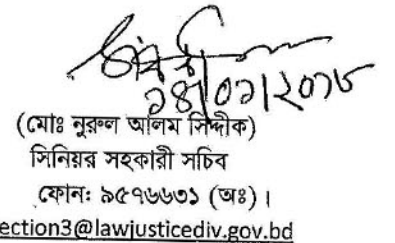 (মোঃ নুরুল আলম সিদ্দীক)
সিনিয়র সহকারী সচিব
ফোনঃ ৯৫৭৬৬৩১ (অঃ)।
ection3@lawjusticediv.gov.bd